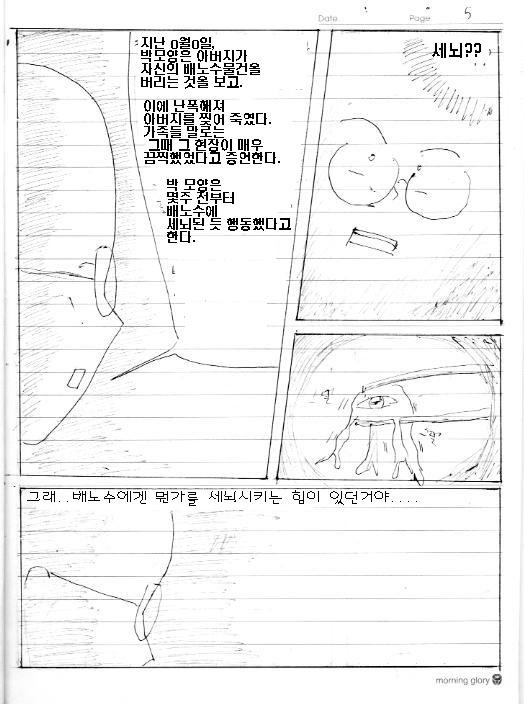 Date.
Page. 5
지난 0월0일,
박모양은 아버지가
자신의 배노수물건을
버리는 것을 보고.
이에 난폭해져
아버지를 찢어 죽였다.
가족들 말로는
그때 그 현장이 매우
끔찍했었다고 증언한다.
박 모양은
몇주 전부터
배노수에
세뇌된 듯 행동했다고
한다.
세뇌??
그래..배노수에겐 뭔가를 세뇌시키는 힘이 있던거야....
morning glory